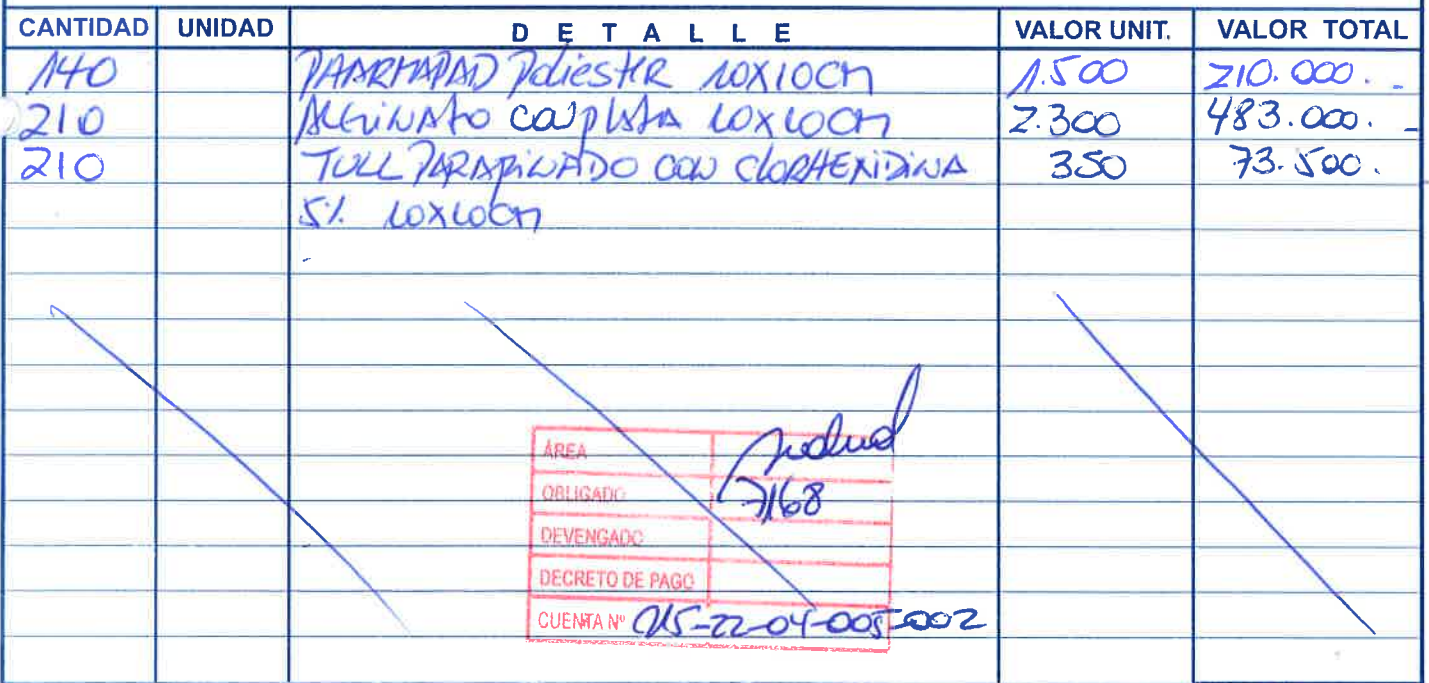 CANTIDAD UNIDAD DETALLE VALOR UNIT. VALOR TOTAL
140 PHARMAPAD Poliester 10X10cm 1.500 210.000.-
210 Alginato con plata 10x10cm 2.300 483.000.-
210 TULL PARAFINADO CON CLORHEXIDINA 350 73.500.
5% 10x10cm
ÁREA Salud
OBLIGADO 7168
DEVENGADO
DECRETO DE PAGO
CUENTA Nº 215-22-04-005-002